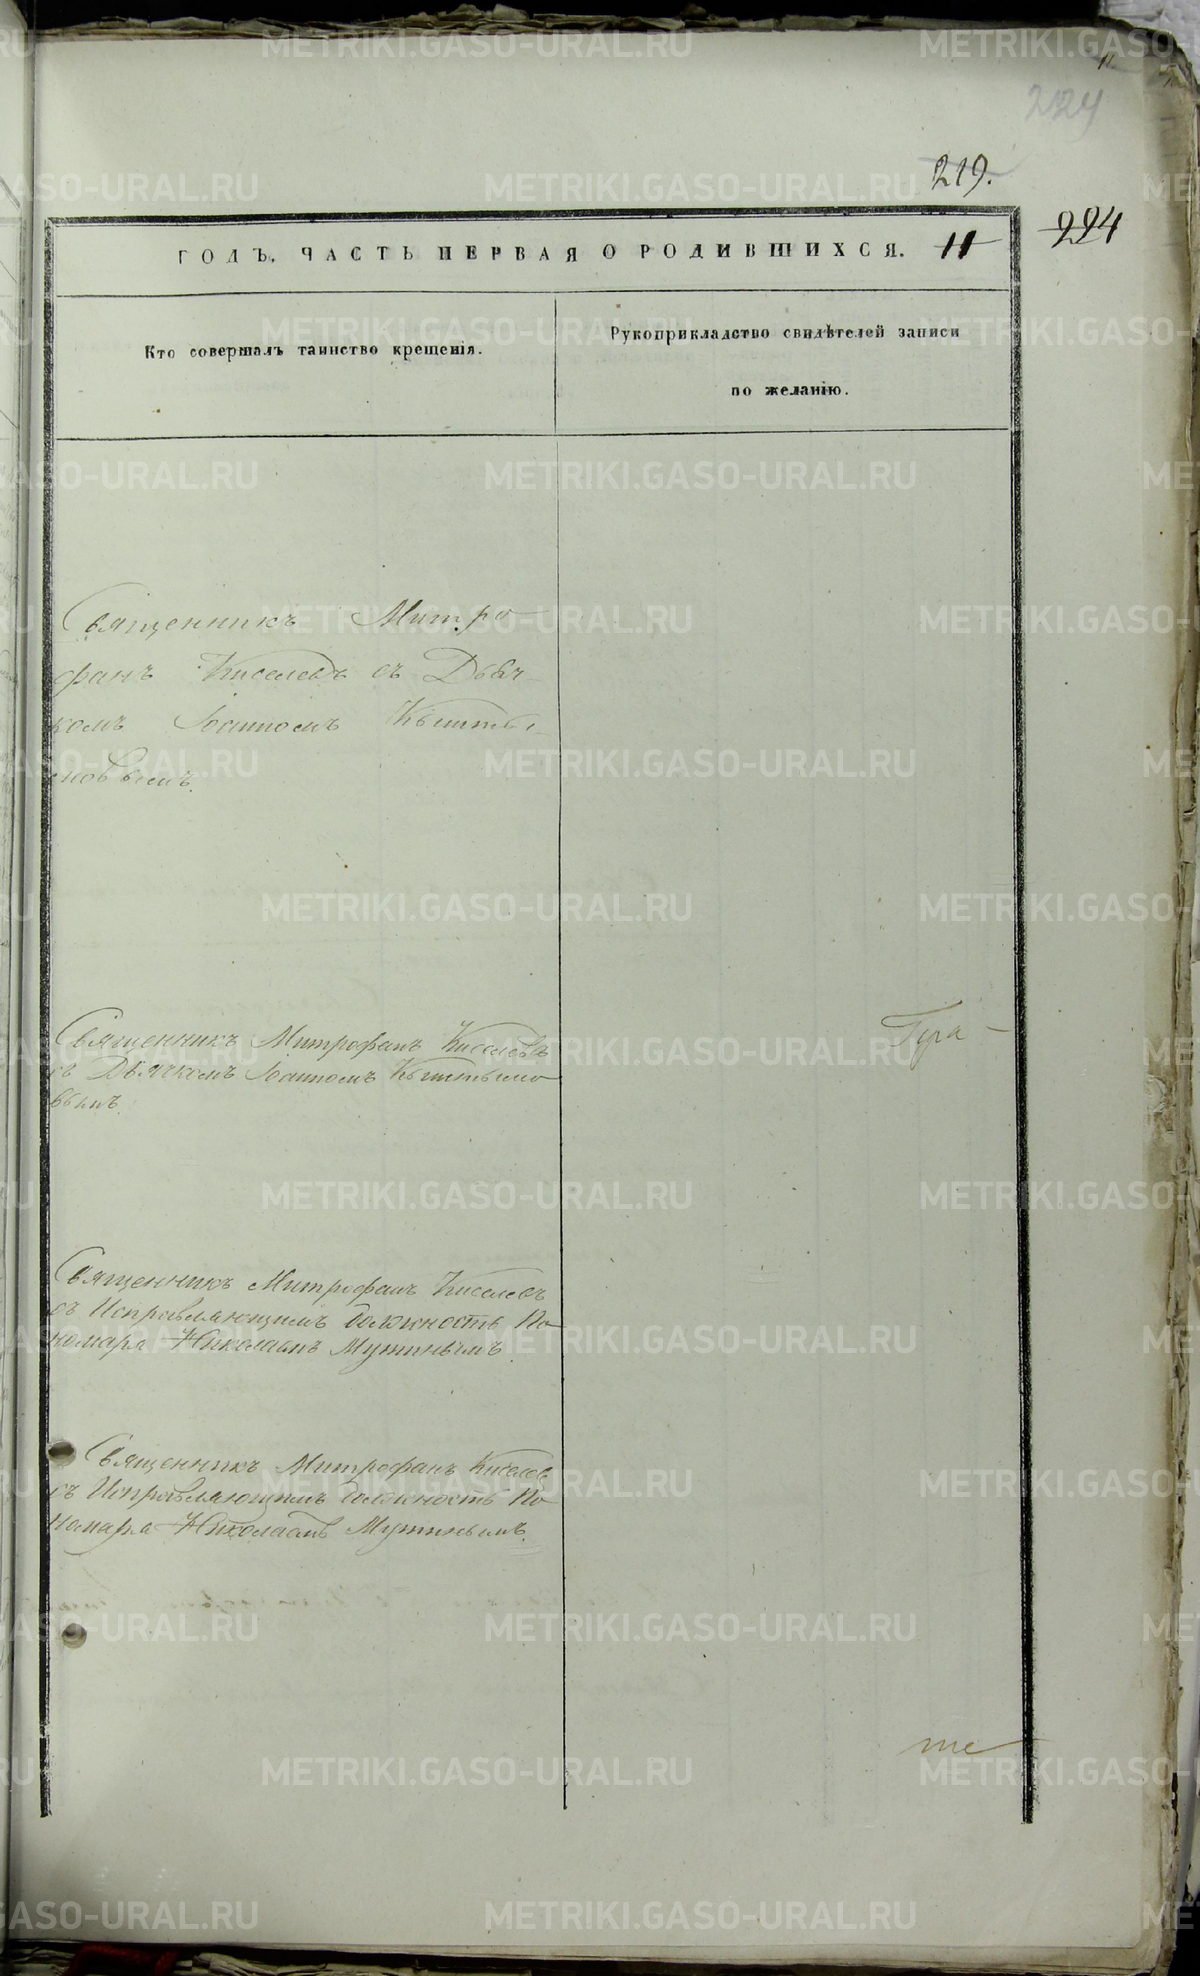 11
224
219.
224
ГОДЪ. ЧАСТЬ ПЕРВАЯ О РОДИВШИХСЯ. 11
Кто совершалъ таинство крещенія.
Рукоприкладство свидѣтелей записи
по желанію.
Священникъ Митро
фанъ Киселевъ съ Дьяч
комъ Іоанномъ Кышты
мовымъ.
Священникъ Митрофанъ Киселевъ
съ Дьячкомъ Іоанномъ Кыштымо
вымъ.
Священникъ Митрофанъ Киселевъ
съ Исправляющимъ должность По
номаря Николаемъ Мутинымъ
Священникъ Митрофанъ Киселев
съ Исправляющимъ должность По
номаря Николаемъ Мутинымъ.
METRIKI.GASO-URAL.RU